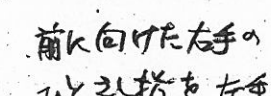 前に向けた右手の
ひとさし指を左手